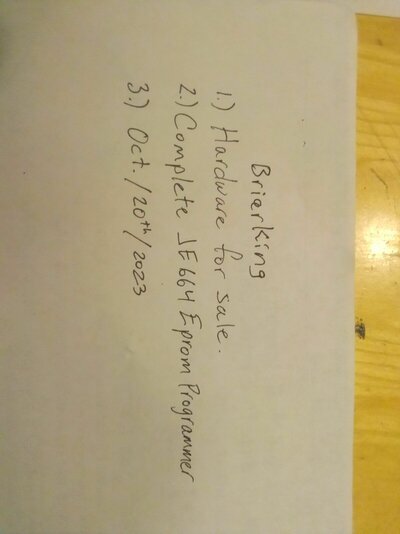 Brierking
1.) Hardware for sale.
2.) Complete JE664 Eprom Programmer
3.) Oct./20th/2023